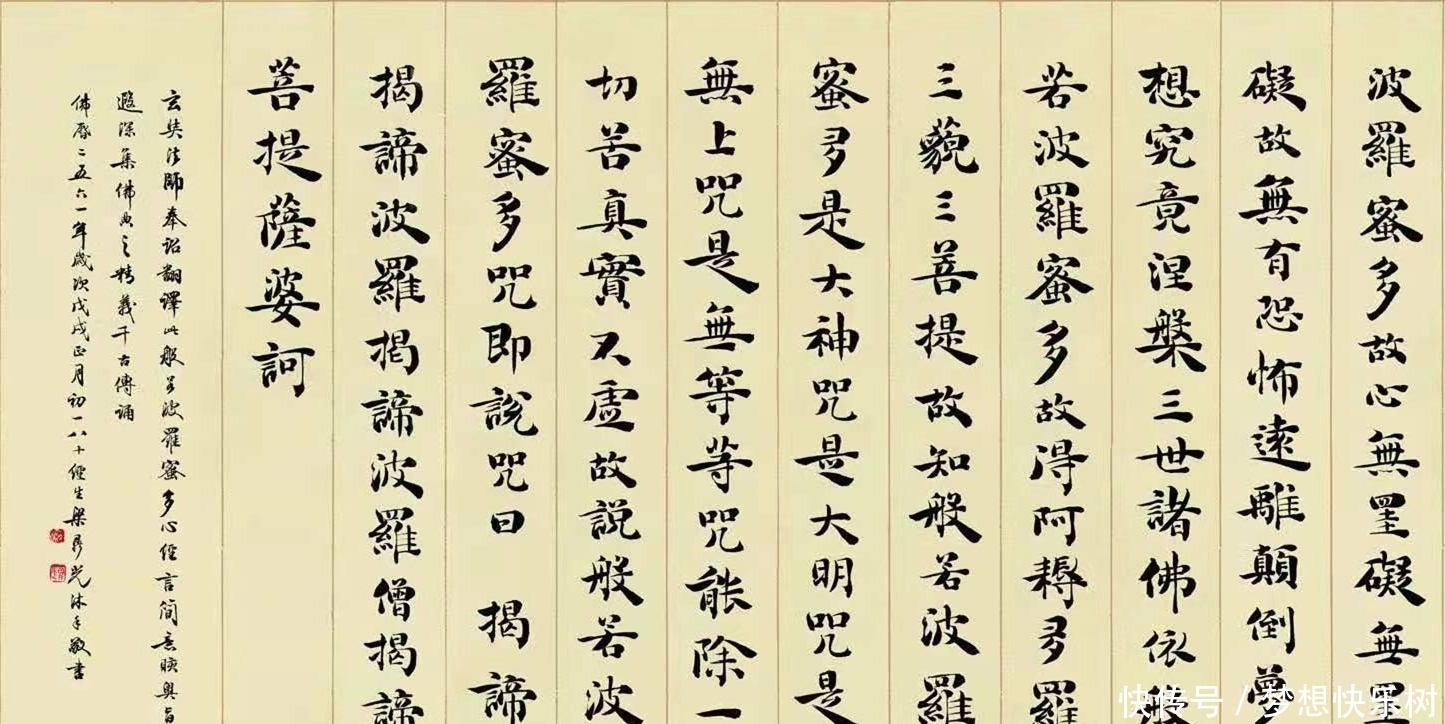 波羅蜜多故心無罣礙無罣
礙故無有恐怖遠離顛倒夢
想究竟涅槃三世諸佛依般
若波羅蜜多故得阿耨多羅
三藐三菩提故知般若波羅
蜜多是大神咒是大明咒是
無上咒是無等等咒能除一
切苦真實不虛故說般若波
羅蜜多咒即說咒曰 揭諦
揭諦波羅揭諦波羅僧揭諦
菩提薩婆訶
玄奘法師奉詔翻譯此般若波羅蜜多心經言簡意賅奧旨
遐深集佛典之精義千古傳誦
佛曆二五六一年歲次戊戌正月初一八十經生梁鼎光沐手敬書
快传号 / 梦想快乐树